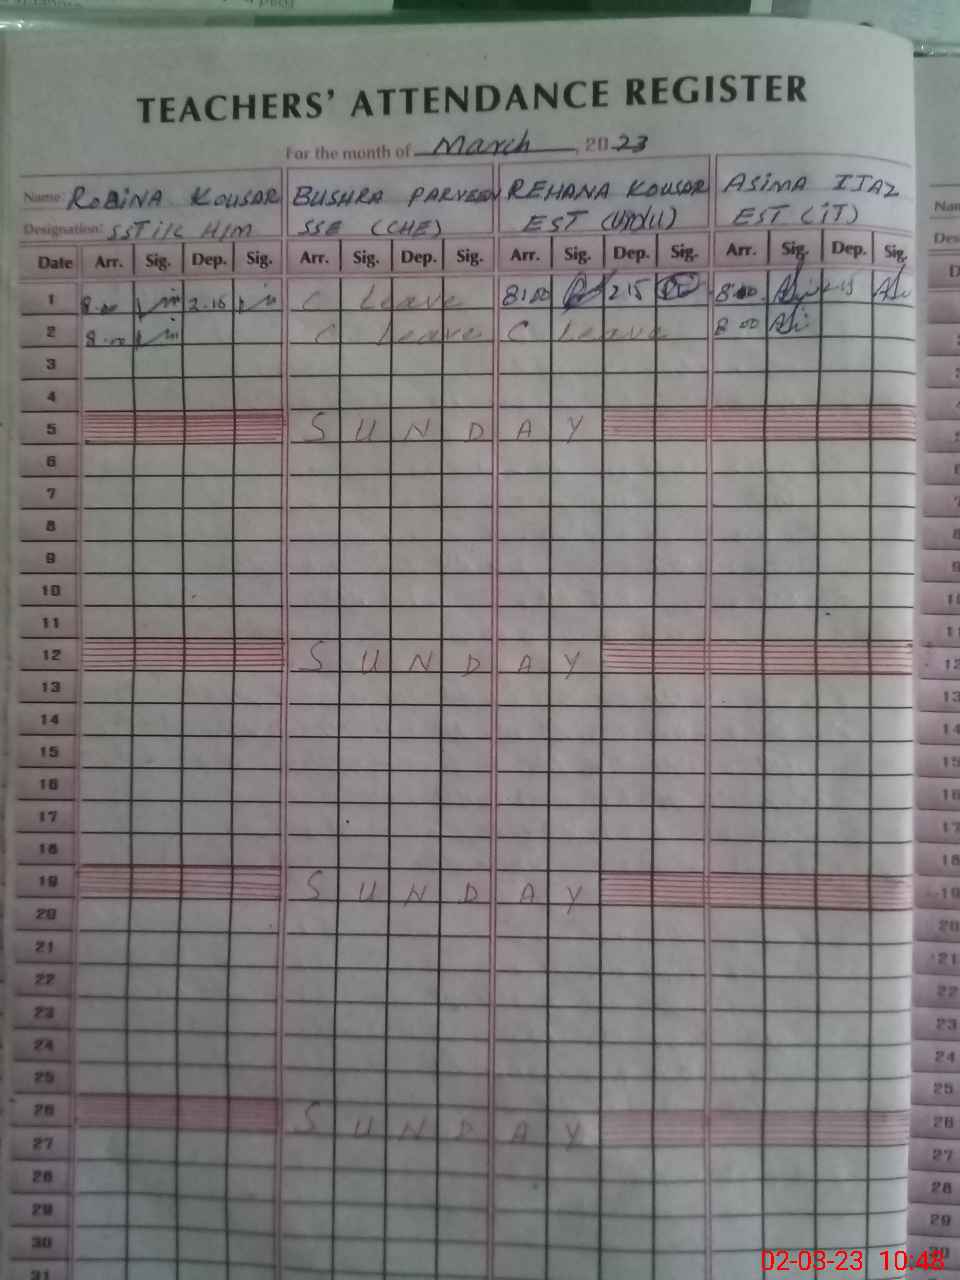 TEACHERS' ATTENDANCE REGISTER
For the month of March, 2023
Name: ROBINA KOUSAR BUSHRA PARVEEN REHANA KOUSAR ASIMA IJAZ
Designation: SST i/c H/M SSE (CHE) EST (URDU) EST (IT)
Date Arr. Sig. Dep. Sig. Arr. Sig. Dep. Sig. Arr. Sig. Dep. Sig. Arr. Sig. Dep. Sig.
1 8.00 2.15 C Leave 8:00 2.15 8.00
2 8.00 C Leave C Leave 8.00
3
4
5 SUNDAY
6
7
8
9
10
11
12 SUNDAY
13
14
15
16
17
18
19 SUNDAY
20
21
22
23
24
25
26 SUNDAY
27
28
29
30
31
Des
10
11
12
13
14
15
16
17
18
19
20
21
22
23
24
25
26
27
28
29
02-03-23 10:48